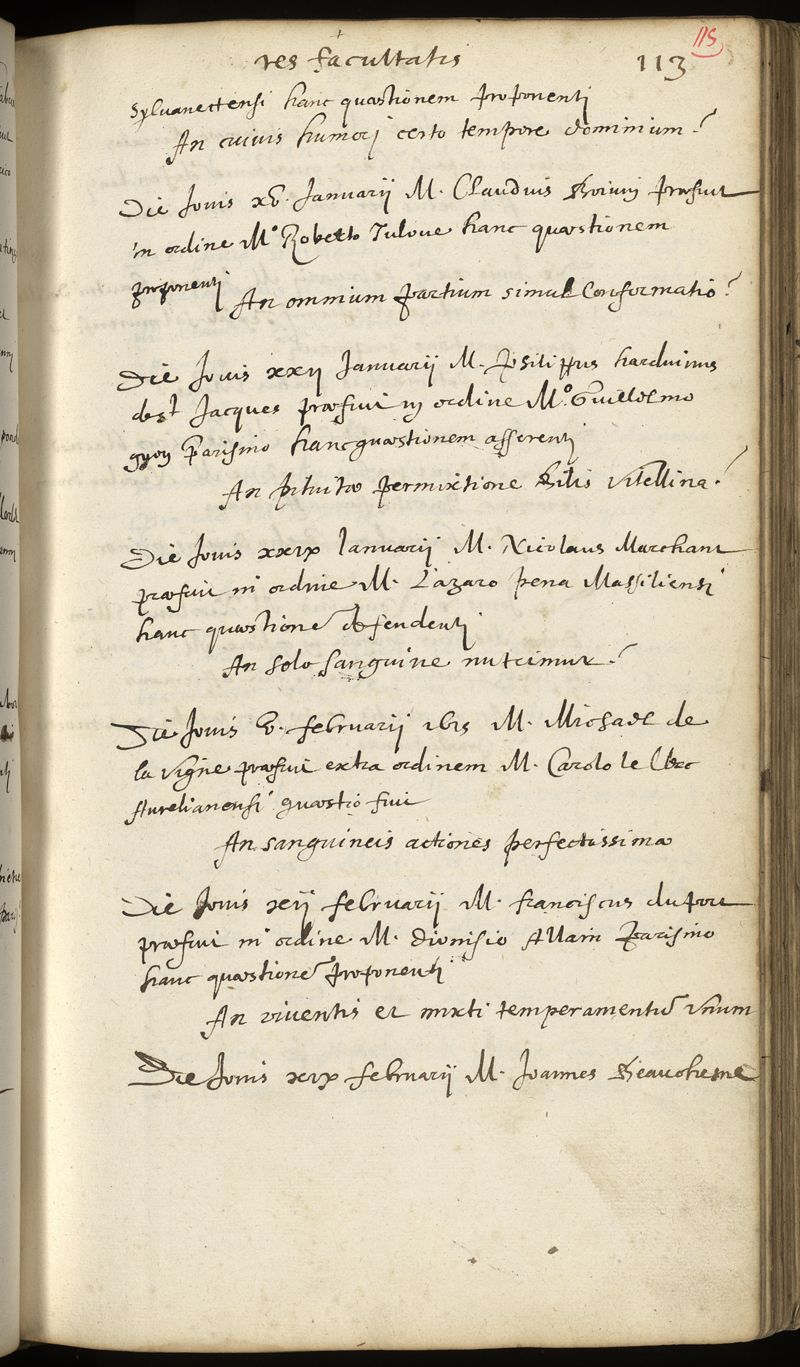 115
res facultatis 113
sylvanectensi hanc quæstionem proponenti
An cuivis humori certo tempore dominium?
Die Jovis xv. Januarij M. Claudius præfuit
in ordine M.º Roberto Tuloue hanc quæstionem
proponenti
An omnium partium simul Conformatio?
Die Jovis xxij Januarij M. philippus harduinus
de st Jacques præfuit in ordine M.º Guillelmo
gyon parisino hanc quæstionem asserenti
An pituitæ permixtione bilis vitellina?
Die Jovis xxix Januarij M. Nicolaus Marchant
præfuit in ordine M. Lazaro pena Massiliensi
hanc quæstione defendenti
An solo sanguine nutrimur?
Die Jovis v. februarij M. Michael de
la vigne præfuit extra ordinem M. Carolo le
Aurelianensi quæstio fuit
An sanguineis actiones perfectissimæ
Die Jovis xij februarij M. franciscus du port
præfuit in ordine M. dionisio Allain parisino
hanc quæstione proponenti
An viventis et mixti temperamentu vnum
Die Jovis xix februarij M. Joannes Beauchesne